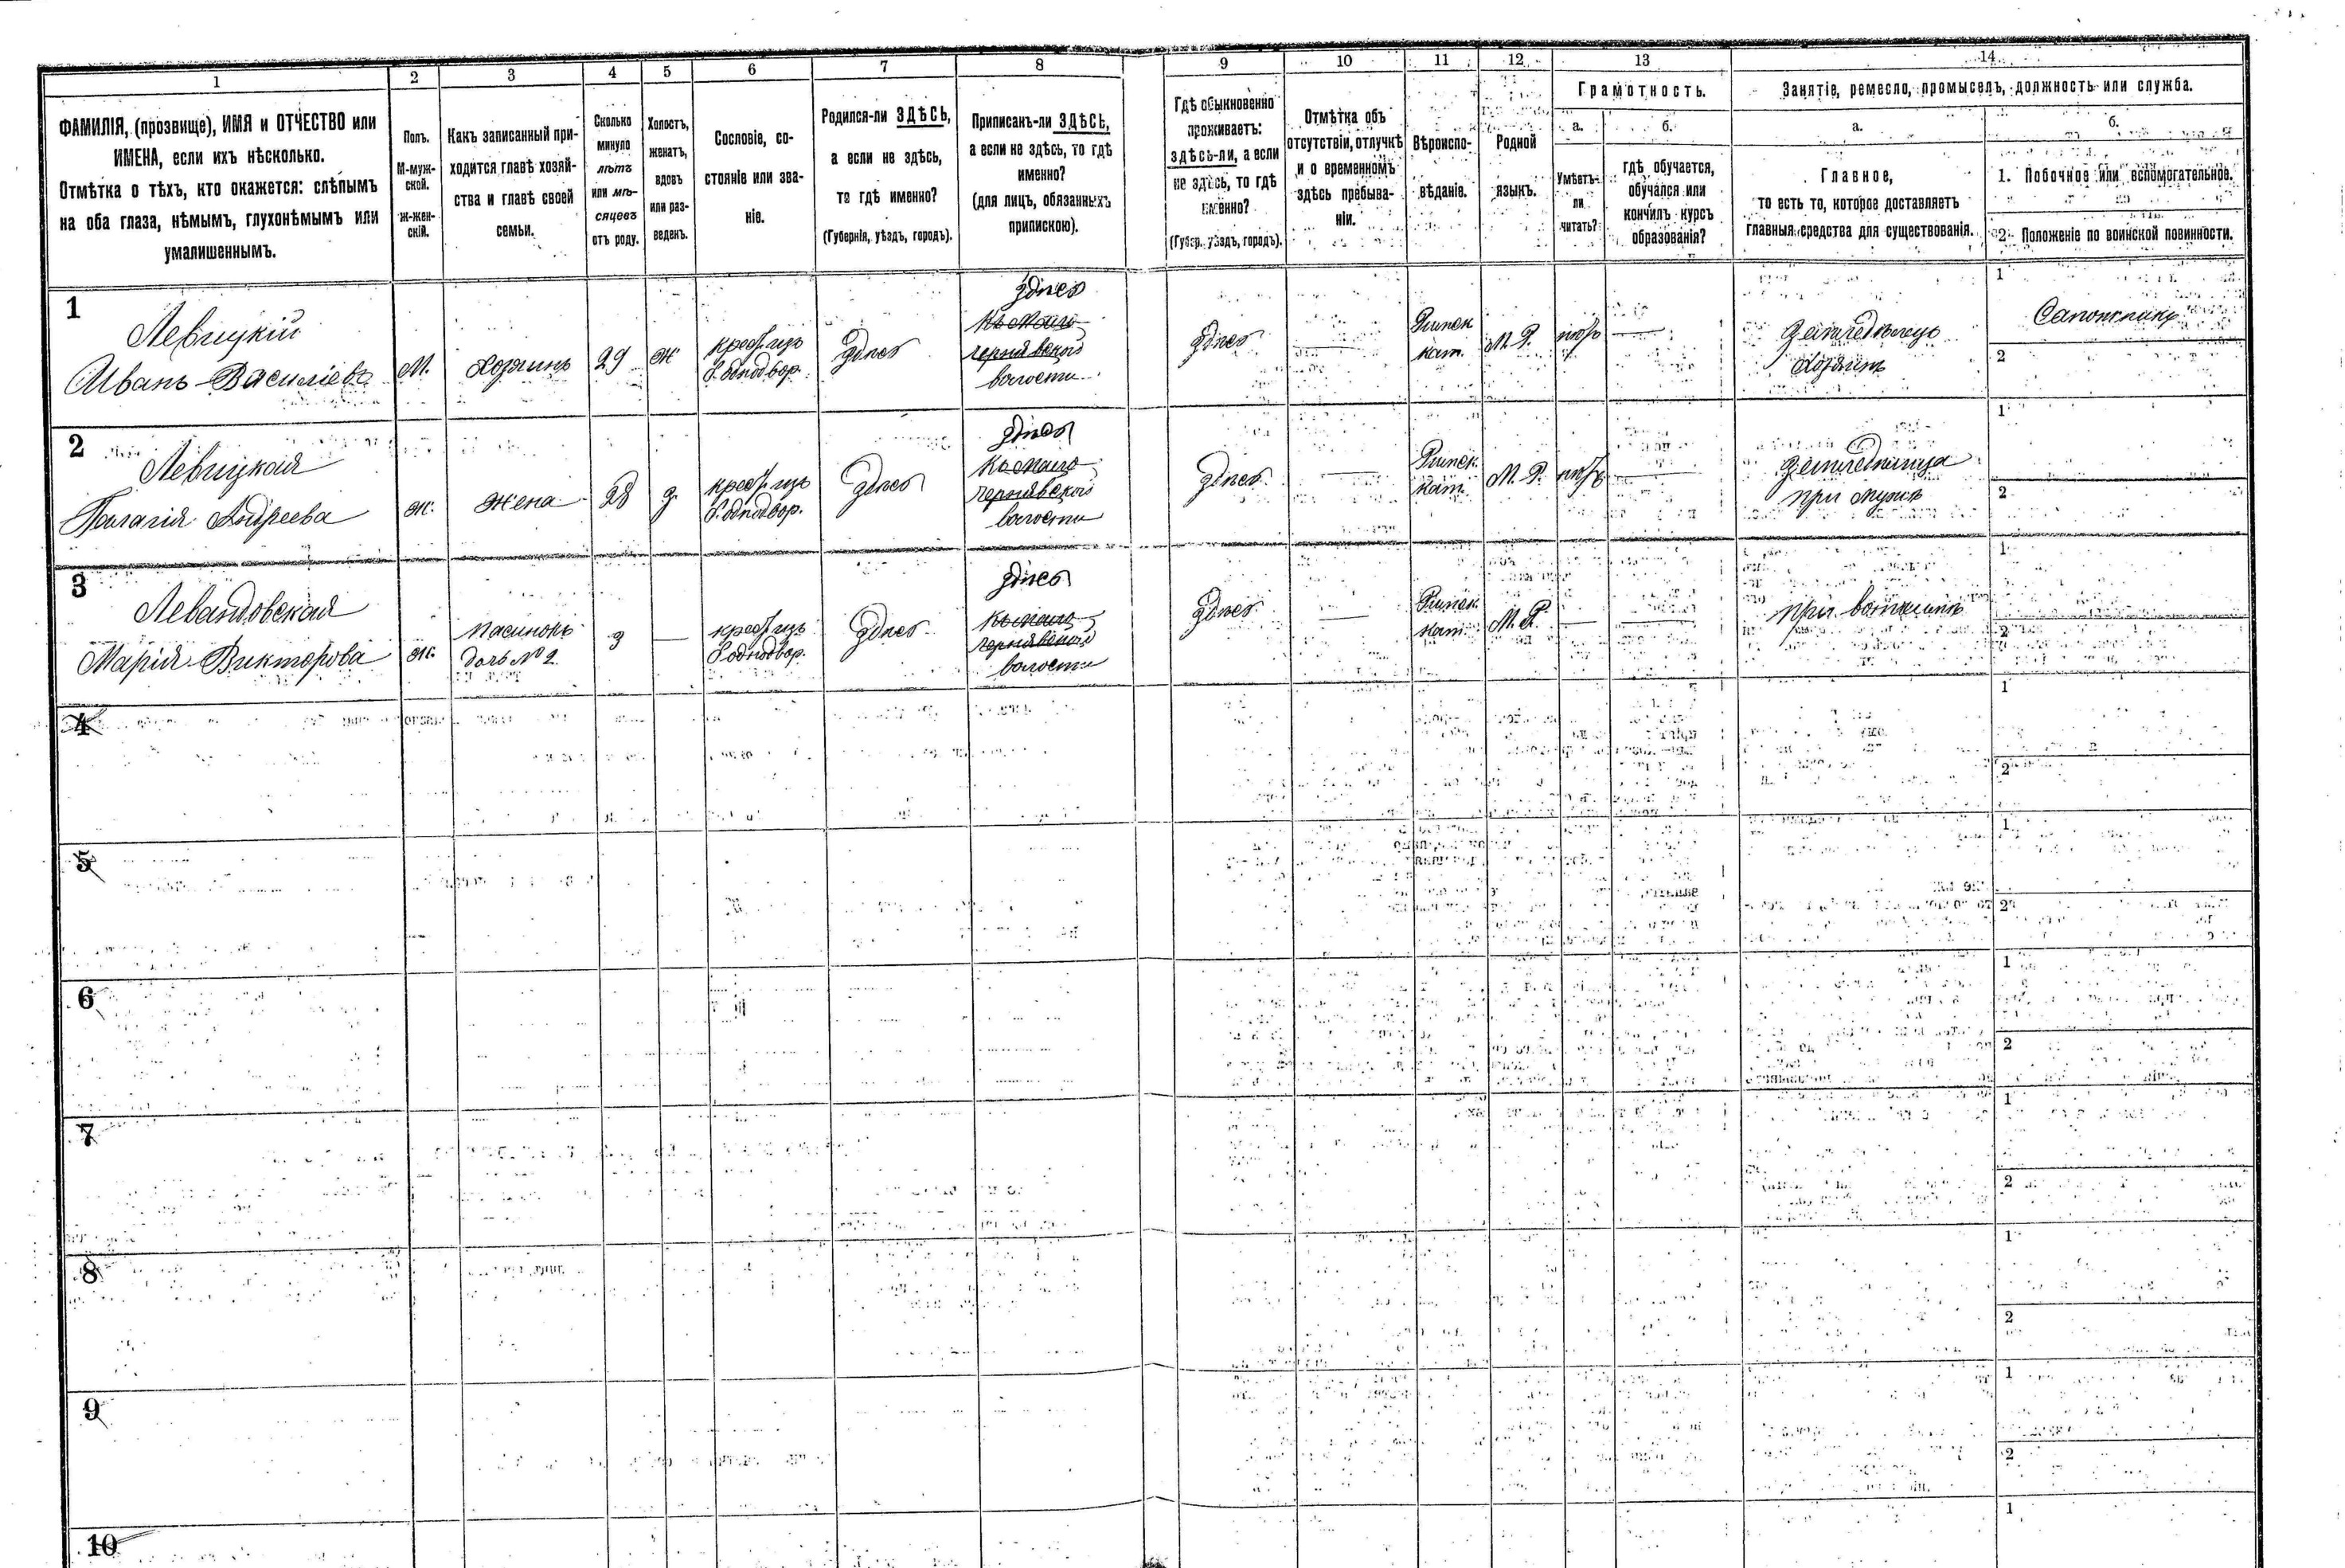 1 2 3 4 5 6 7 8 9 10 11 12 13 14
ФАМИЛІЯ, (прозвище), ИМЯ и ОТЧЕСТВО или
ИМЕНА, если ихъ нѣсколько.
Отмѣтка о тѣхъ, кто окажется: слѣпымъ
на оба глаза, нѣмымъ, глухонѣмымъ или
умалишеннымъ.
Полъ.
М-муж-
ской.
ж-жен-
скій.
Какъ записанный при-
ходится главѣ хозяй-
ства и главѣ своей
семьи.
Сколько
минуло
лѣтъ
или мѣ-
сяцевъ
отъ роду.
Холостъ,
женатъ,
вдовъ
или раз-
веденъ.
Сословіе, со-
стояніе или зва-
ніе.
Родился-ли ЗДѢСЬ,
а если не здѣсь,
то гдѣ именно?
(Губернія, уѣздъ, городъ).
Приписанъ-ли ЗДѢСЬ,
а если не здѣсь, то гдѣ
именно?
(для лицъ, обязанныхъ
припискою).
Гдѣ обыкновенно
проживаетъ:
здѣсь-ли, а если
не здѣсь, то гдѣ
именно?
(Губер. уѣздъ, городъ).
Отмѣтка объ
отсутствіи, отлучкѣ
и о временномъ
здѣсь пребыва-
ніи.
Вѣроиспо-
вѣданіе.
Родной
языкъ.
Грамотность.
а.
Умѣетъ-
ли
читать?
б.
гдѣ обучается,
обучался или
кончилъ курсъ
образованія?
Занятіе, ремесло, промыселъ, должность или служба.
а.
Главное,
то есть то, которое доставляетъ
главныя средства для существованія.
б.
1. Побочное или вспомогательное.
2. Положеніе по воинской повинности.
1
Левицкій
Иванъ Васильевъ
М.
Хозяинъ
29
ж
крест. изъ
б. однодвор.
здѣсь
здѣсь
волости
здѣсь
Римск
кат.
М. Р.
Земледѣлецъ
Хозяинъ
1
Сапожникъ
2
2
Левицкая
Андреева
ж.
жена
28
з
крест. изъ
б. однодвор.
здѣсь
здѣсь
волости
здѣсь
Римск.
кат.
М. Р.
при мужѣ
1
2
3
Левандовская
Марія Викторова
ж.
дочь № 2.
3
крест. изъ
б. однодвор.
здѣсь
здѣсь
волости
здѣсь
Римск.
кат.
М. Р.
при вотчимѣ
1
2
4
1
2
5
1
2
6
1
2
7
1
2
8
1
2
9
1
2
10
1